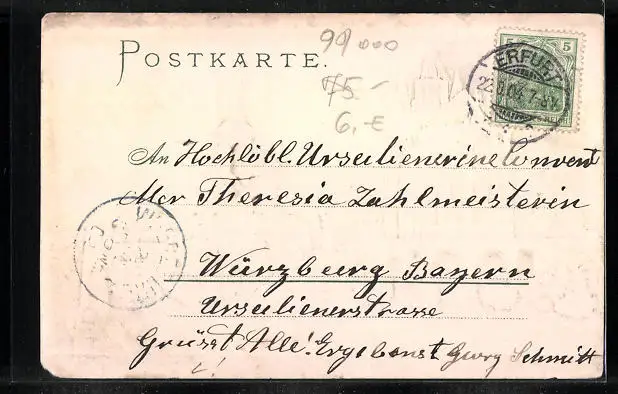 POSTKARTE.
99000
75.-
6,-€
5 5
ERFURT
7-8V.
An Hochlöbl. Ursulienerine Convent
Mer Theresia Zahlmeisterin
Würzburg Bayern
Ursulienerstrasse
Grüsst Alle! Ergebenst Georg Schmitt